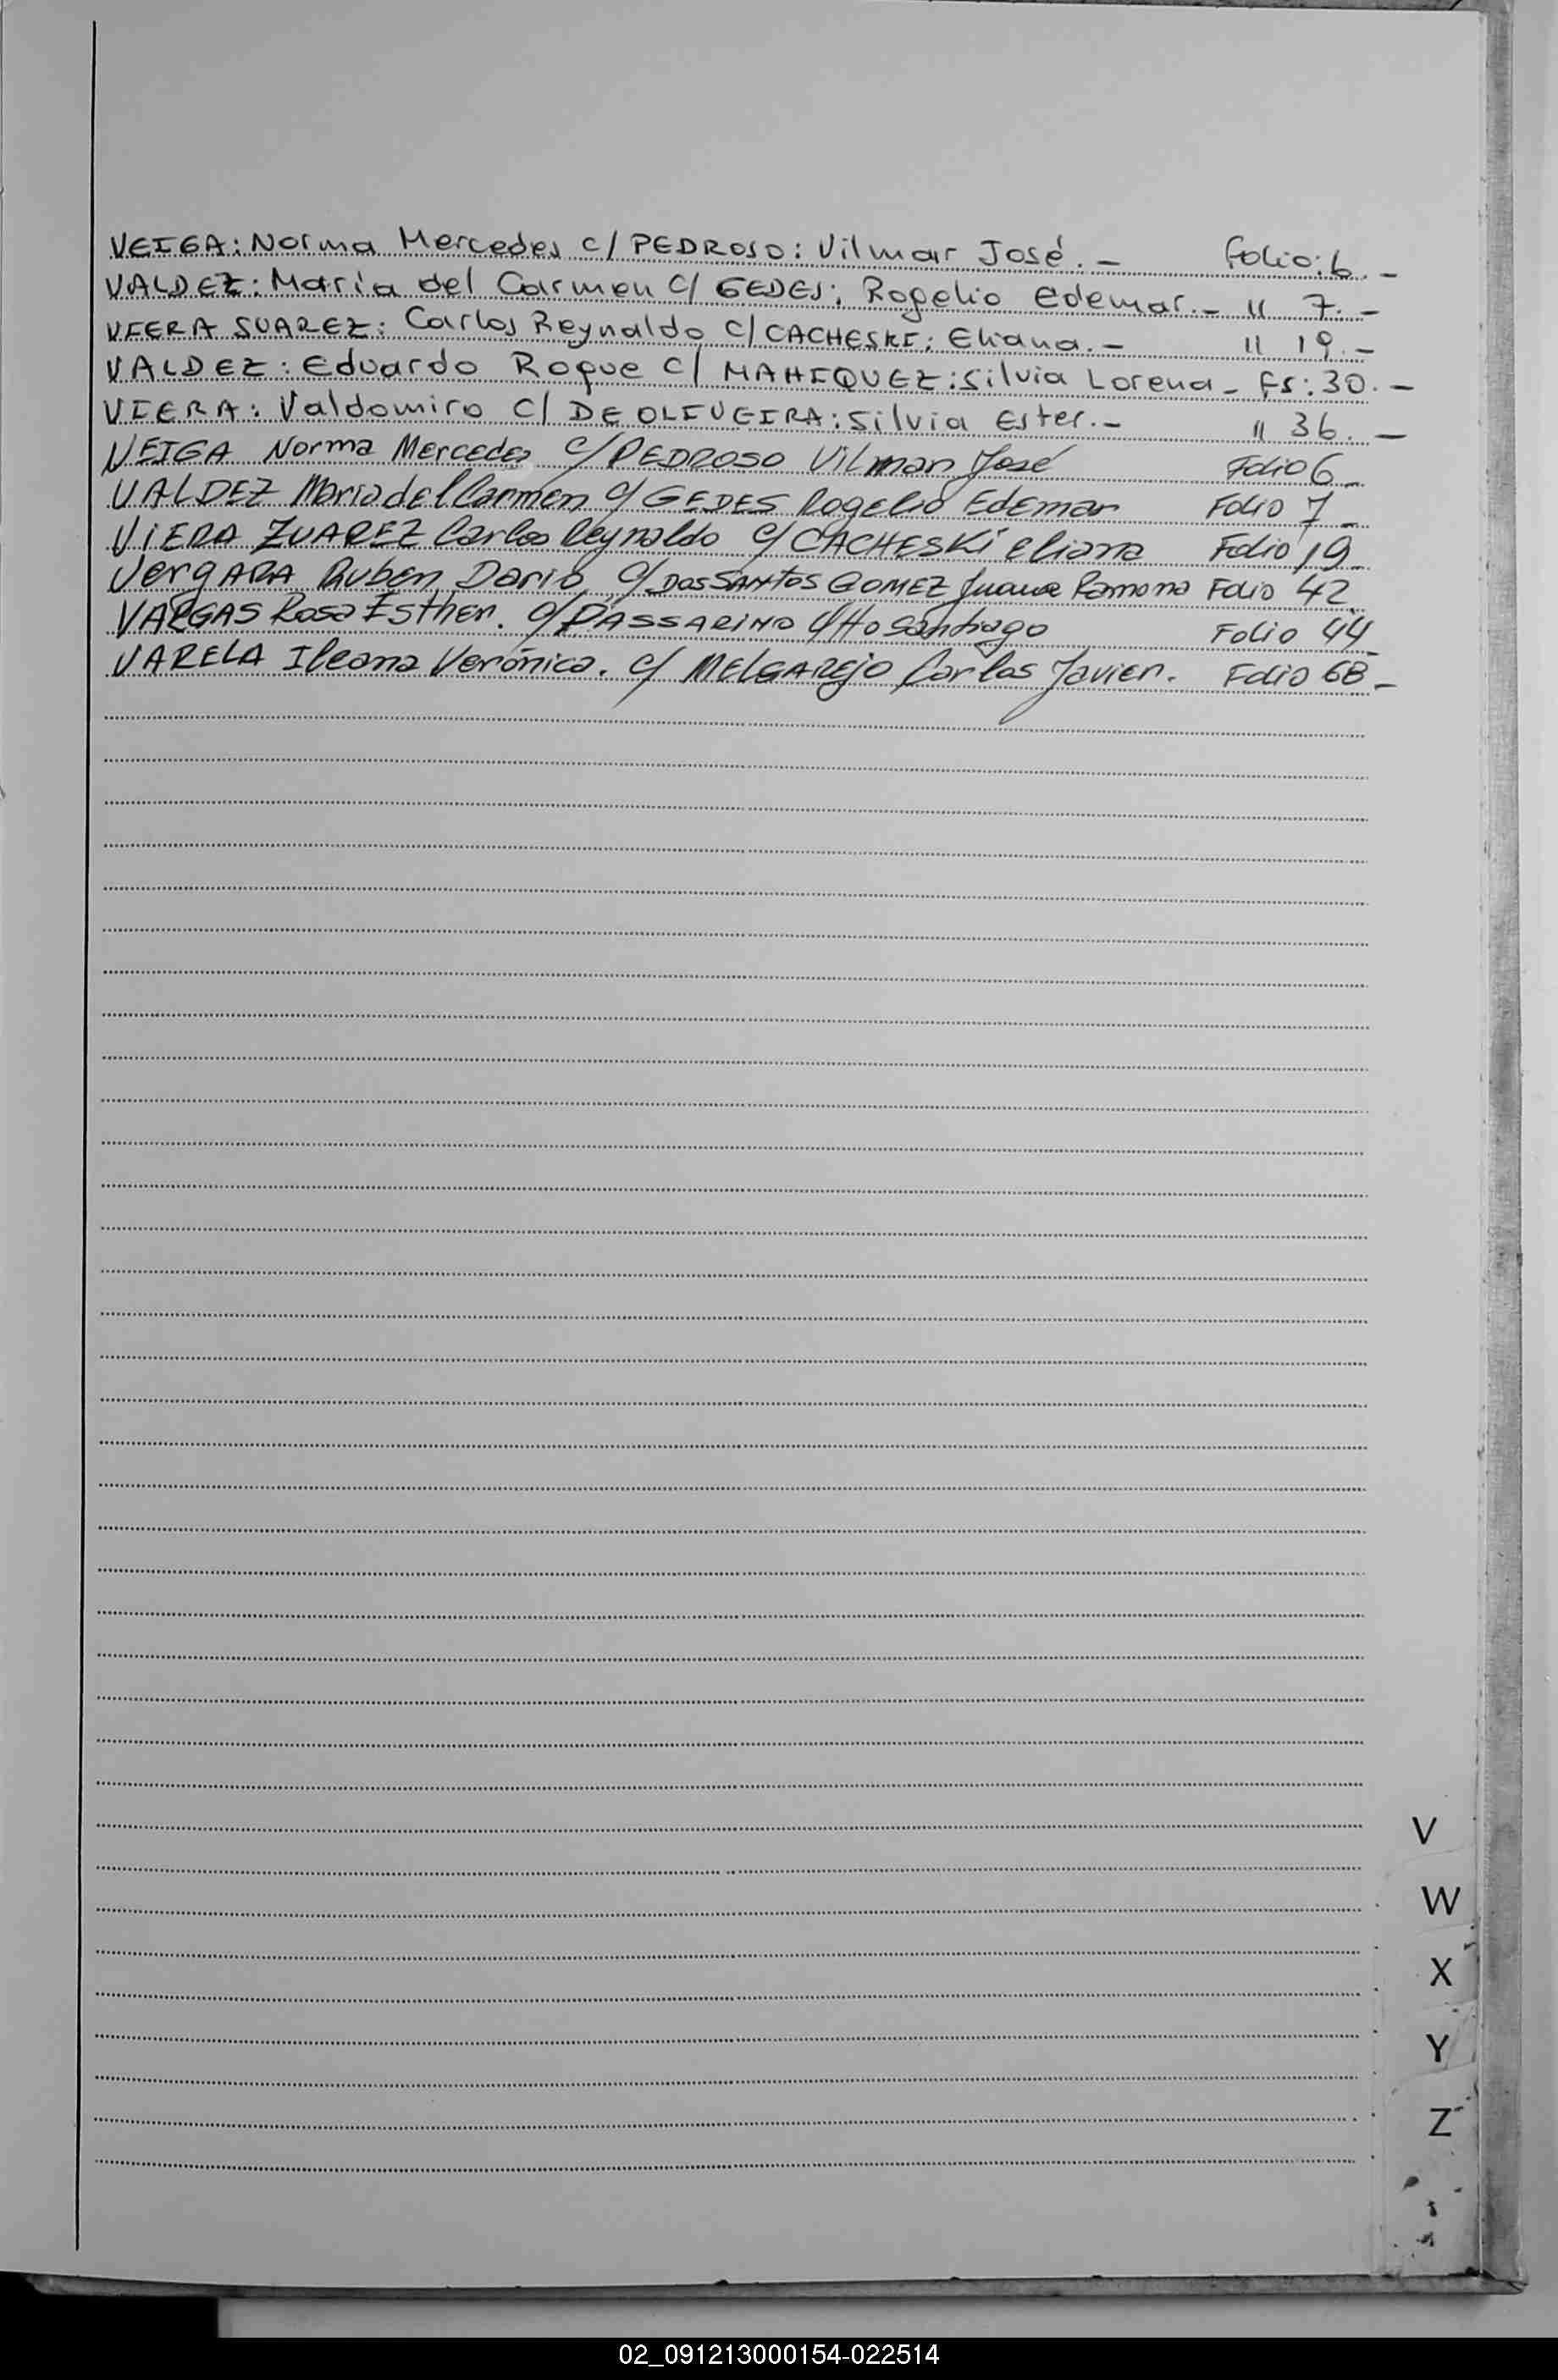 VEIGA: Norma Mercedes c/ PEDROSO: Vilmar José. – Folio: 6. –
VALDEZ: María del Carmen c/ GEDES: Rogelio Edemar. – " 7. –
VIERA SUAREZ: Carlos Reynaldo c/ CACHESKI: Eliana. – " 19. –
VALDEZ: Eduardo Roque c/ MAHIQUEZ: Silvia Lorena – Fs: 30. –
VIERA: Valdomiro c/ DE OLIVEIRA: Silvia Ester. – " 36. –
VEIGA Norma Mercedes c/ PEDROSO Vilmar José Folio 6 –
VALDEZ Maria del Carmen c/ GEDES Rogelio Edemar Folio 7 –
VIERA ZUAREZ Carlos Reynaldo c/ CACHESKi Eliana Folio 19 –
VergARA Ruben Dario c/ Dos SANTOS GOMEZ Juana Ramona Folio 42
VARGAS Rosa Esther. c/ PASSARINO Otto Santiago Folio 44 –
VARELA Ileana Verónica. c/ MELGARejo Carlos Javier. Folio 68 –
V
W
X
Y
Z
02_091213000154-022514